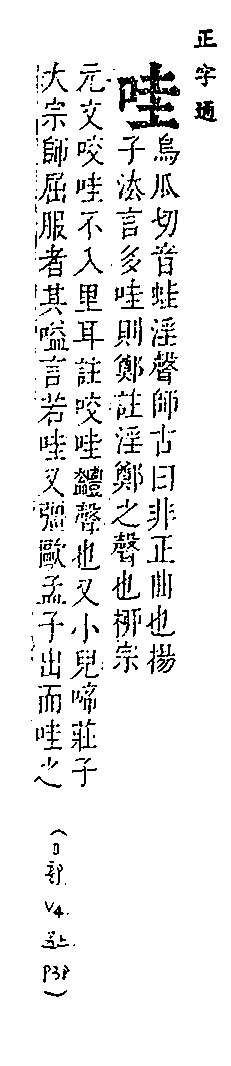 正字通
哇
烏瓜切音蛙淫聲師古曰非正曲也揚
子法言多哇則鄭註淫鄭之聲也柳宗
元文咬哇不入里耳註咬哇𧯆聲也又小兒啼莊子
大宗師屈服者其嗌言若哇又彊歐孟子出而哇之
(口部
V4.
P38)